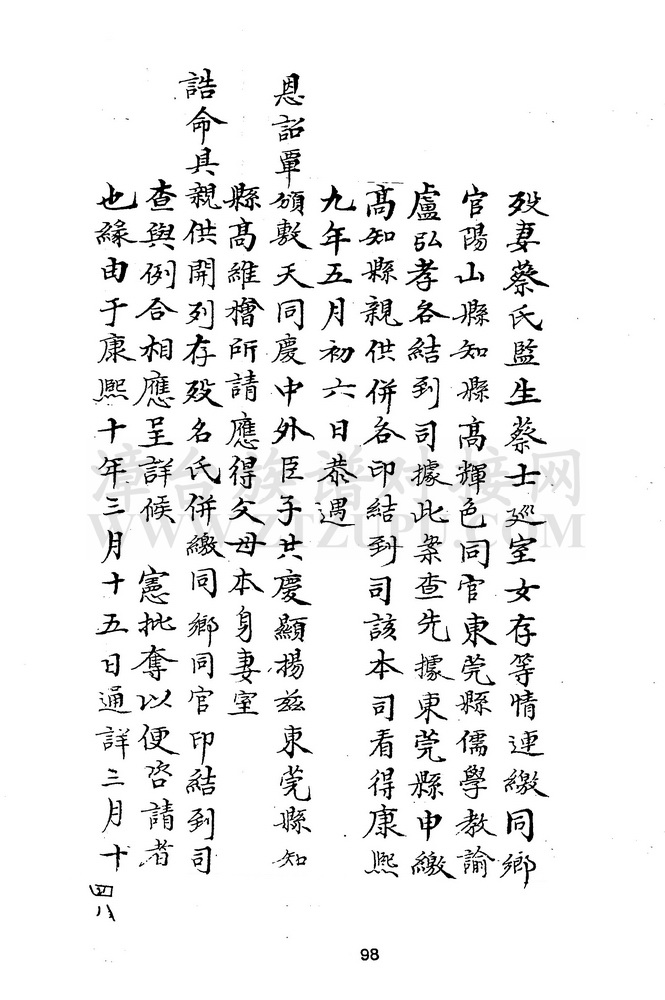 歿妻蔡氏監生蔡士廵室女存等情連繳同鄉
官陽山縣知縣高輝色同官東莞縣儒學教諭
盧弘孝各結到司據此案查先據東莞縣申繳
高知縣親供併各印結到司該本司看得康熙
九年五月初六日恭遇
恩詔覃頒敷天同慶中外臣子共慶顯揚茲東莞縣知
縣高維檜所請應得父母本身妻室
誥命具親供開列存歿名氏併繳同鄉同官印結到司
查與例合相應呈詳候 憲批奪以便咨請者
也緣由于康熙十年三月十五日通詳三月十
四八
98
漳台族谱对接网
WWW.ZTZUPU.COM